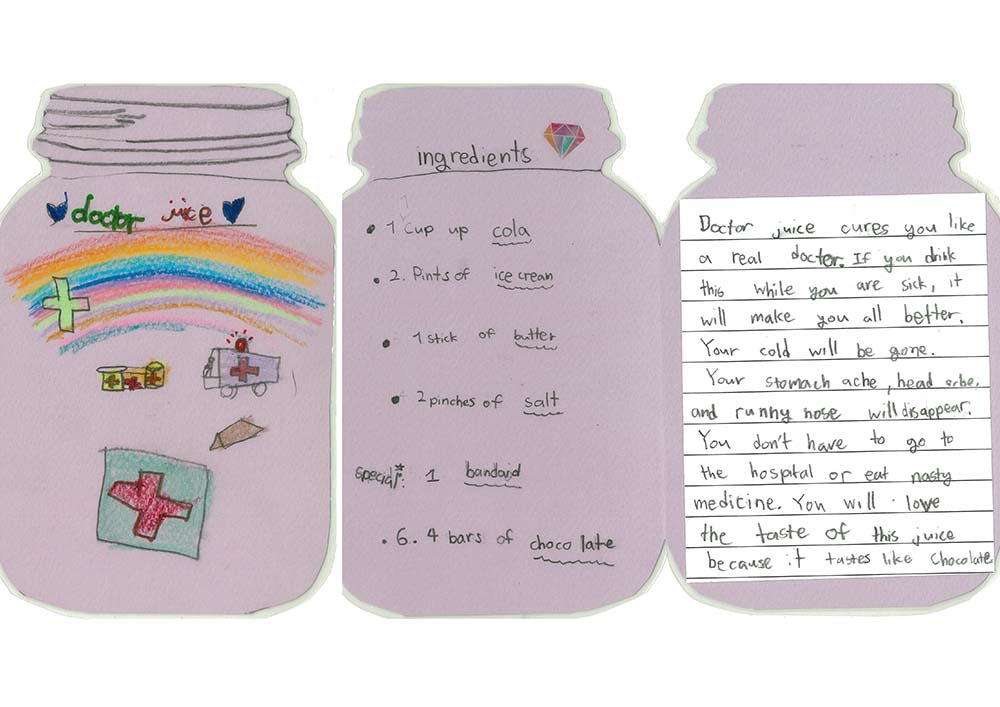 doctor juice
ingredients
1 cup up cola
2. Pints of ice cream
1 stick of butter
2 pinches of salt
special*: 1 bandaid
6. 4 bars of chocolate
Doctor juice cures you like
a real doctor. If you drink
this while you are sick, it
will make you all better.
Your cold will be gone.
Your stomach ache, head ache,
and runny nose will disappear.
You don't have to go to
the hospital or eat nasty
medicine. You will love
the taste of this juice
because it tastes like Chocolate